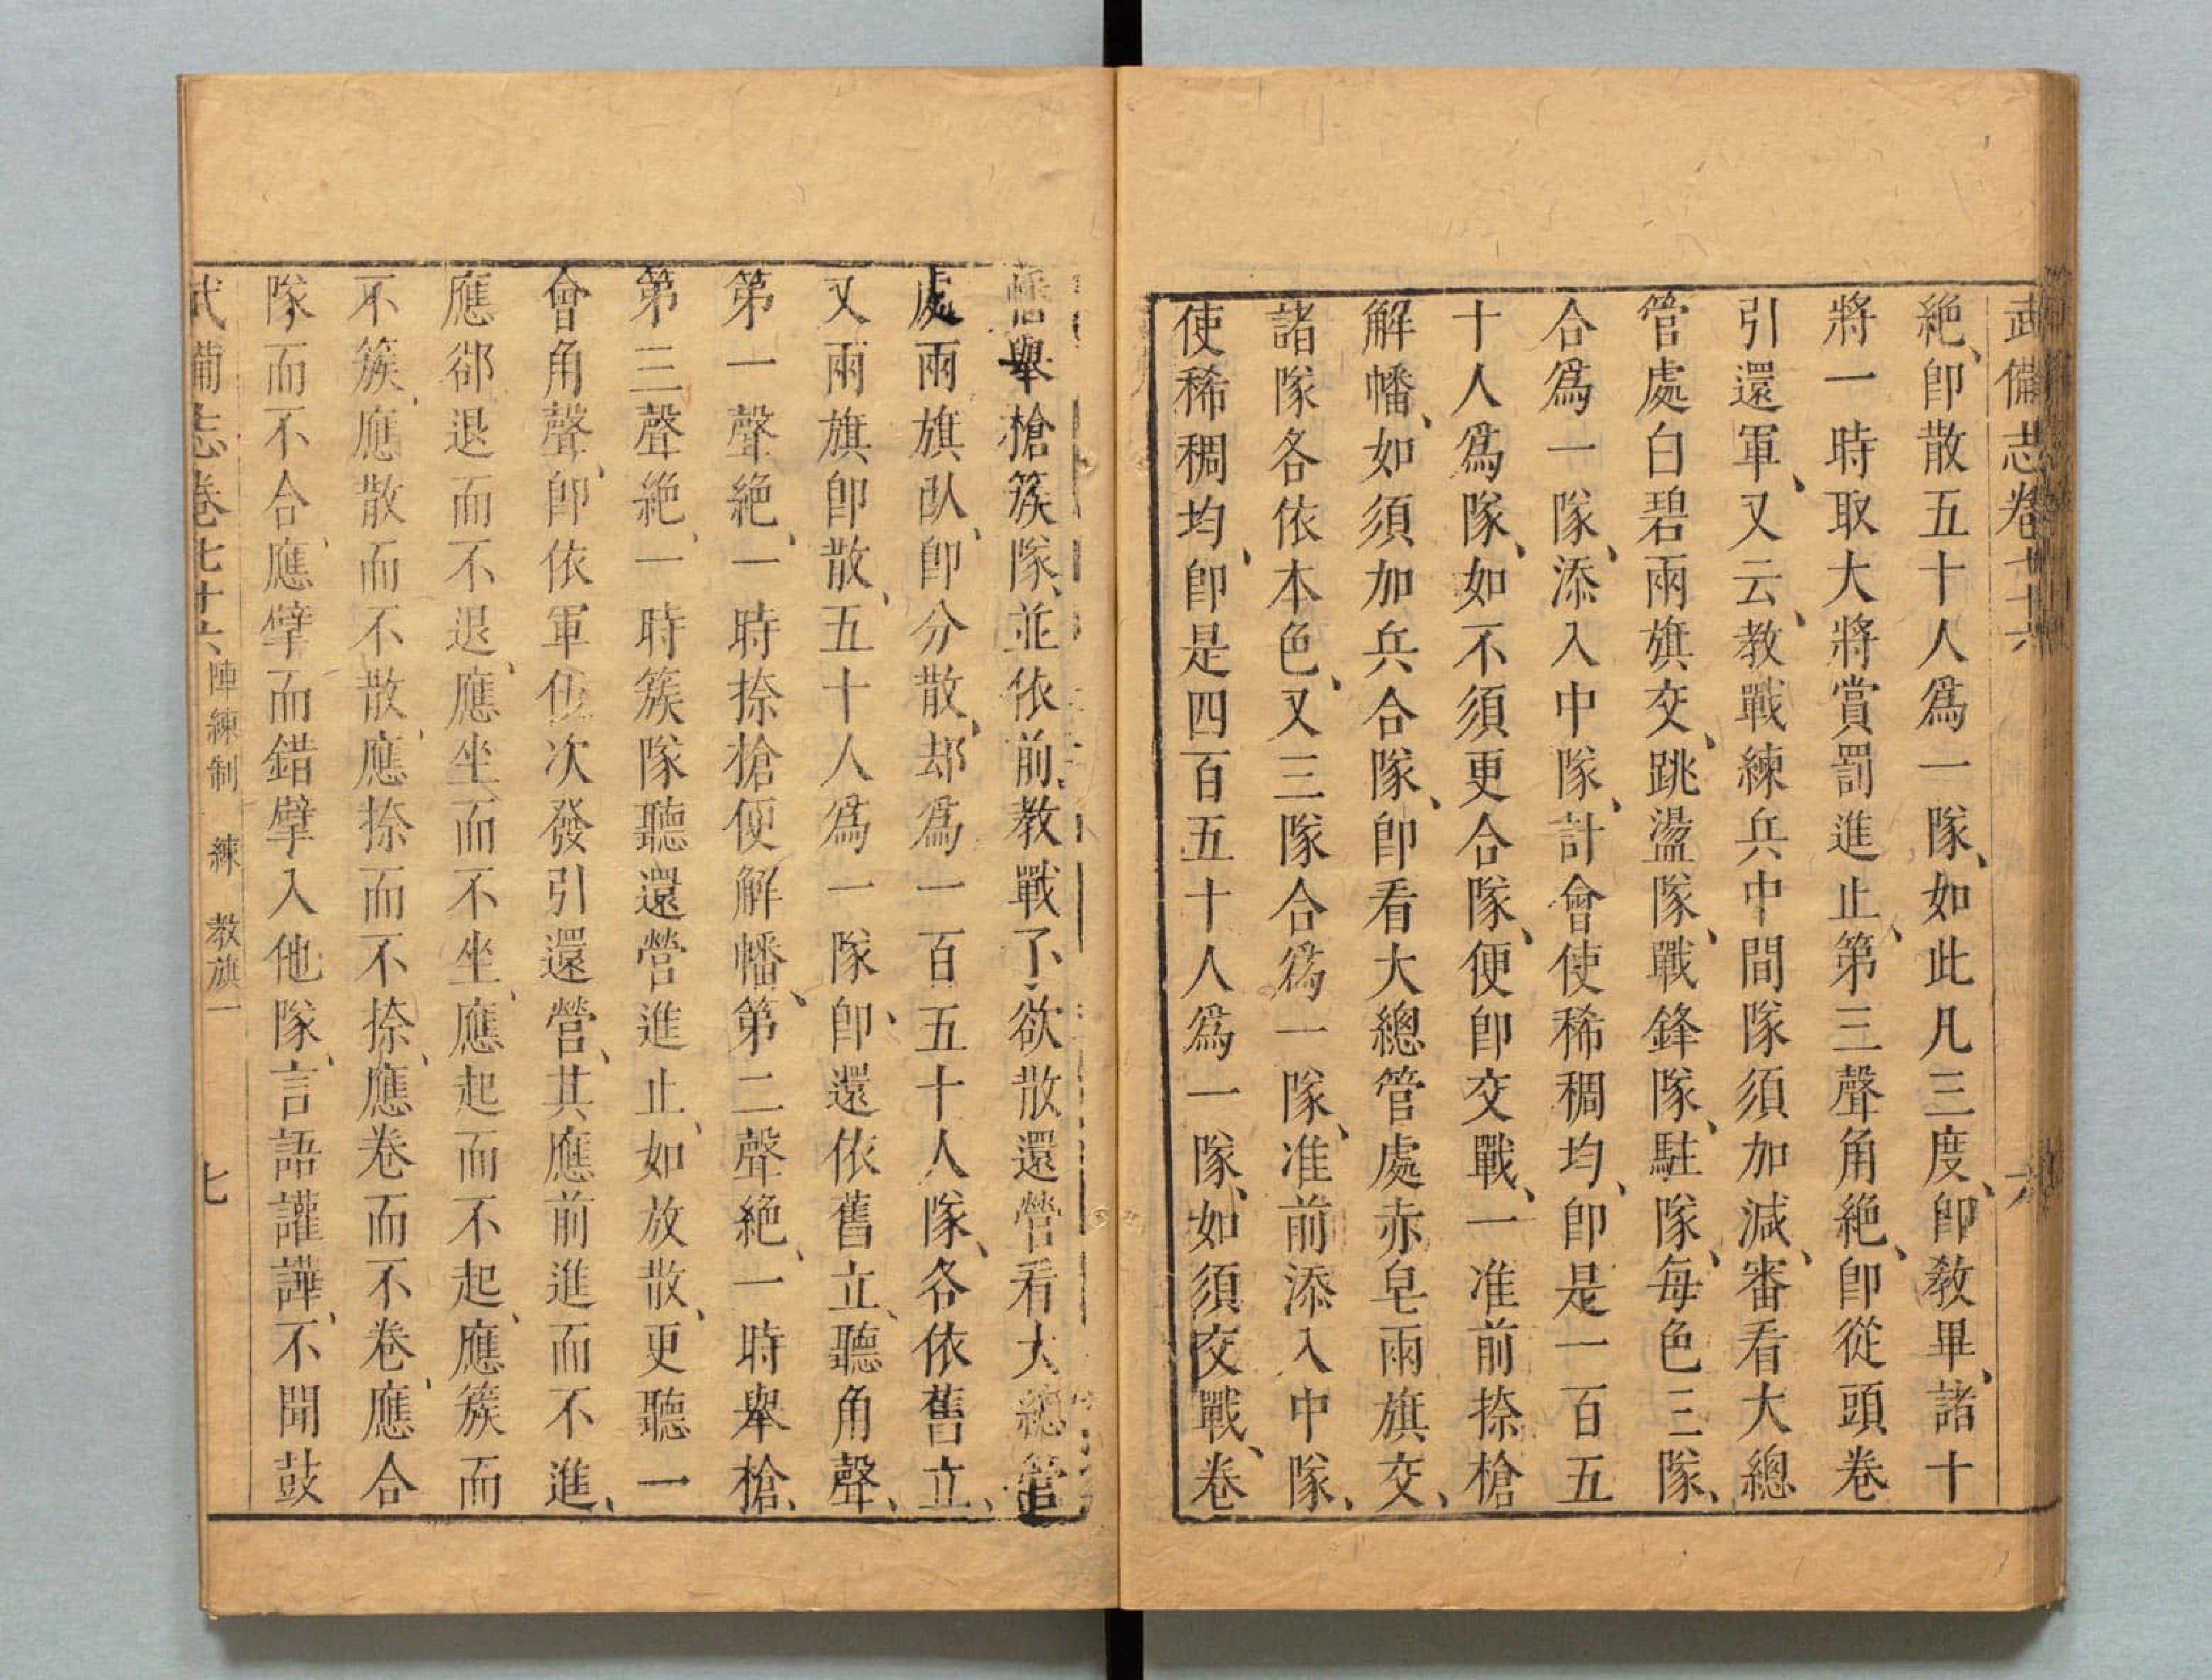 武備志卷七十六 六
絶、卽散五十人爲一隊、如此凡三度、卽教畢、諸十
將一時取大將賞罰進止、第三聲角絶、卽從頭卷
引還軍、又云、教戰練兵中間隊須加減、審看大總
管處白碧兩旗交、跳盪隊、戰鋒隊、駐隊、每色三隊、
合爲一隊、添入中隊、計會使稀稠均、卽是一百五
十人爲隊、如不須更合隊、便卽交戰、一准前捺槍
解幡、如須加兵合隊、卽看大總管處赤皂兩旗交、
諸隊各依本色、又三隊合爲一隊、准前添入中隊、
使稀稠均、卽是四百五十人爲一隊、如須交戰、卷
幡舉槍簇隊、並依前、教戰了、欲散還營看大總管
處兩旗臥、卽分散、却爲一百五十人隊、各依舊立、
又兩旗卽散、五十人爲一隊、卽還依舊立、聽角聲、
第一聲絶、一時捺槍便解幡、第二聲絶、一時舉槍、
第三聲絶、一時簇隊聽還營進止、如放散、更聽一
會角聲、卽依軍伍次發引還營、其應前進而不進、
應郤退而不退、應坐而不坐、應起而不起、應簇而
不簇、應散而不散、應捺而不捺、應卷而不卷、應合
隊而不合、應擘而錯擘入他隊、言語讙譁、不聞鼓
武備志卷七十六 陣練制 練 教旗一 七